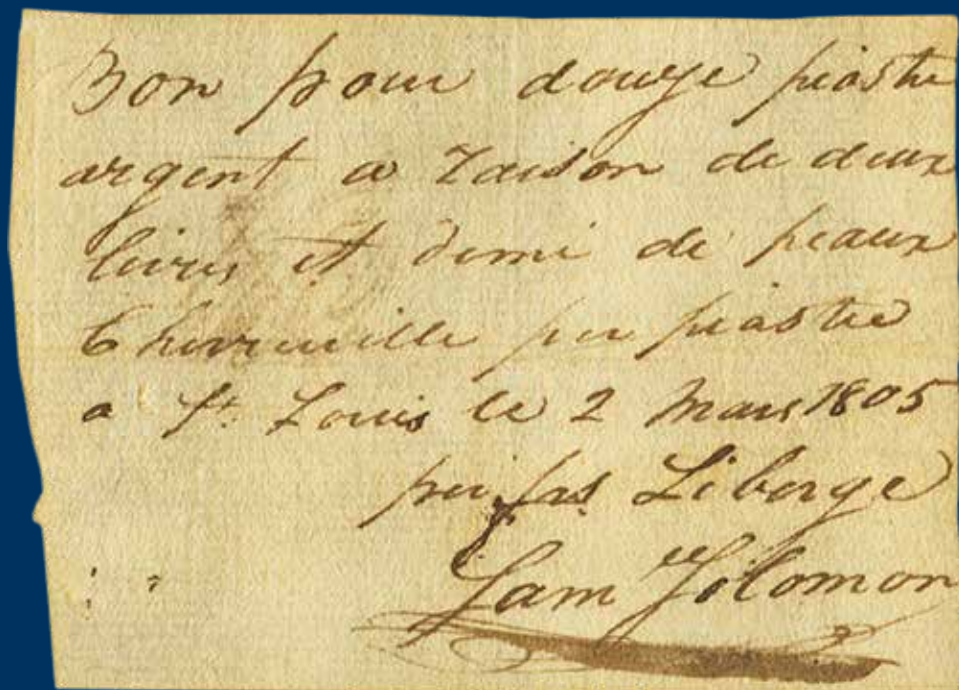 Bon pour douze piastre
argent a raison de deux
livres et demi de peaux
Chevreuille per piastre
a St. Louis le 2 Mars 1805
per Liberge
Sam Solomon